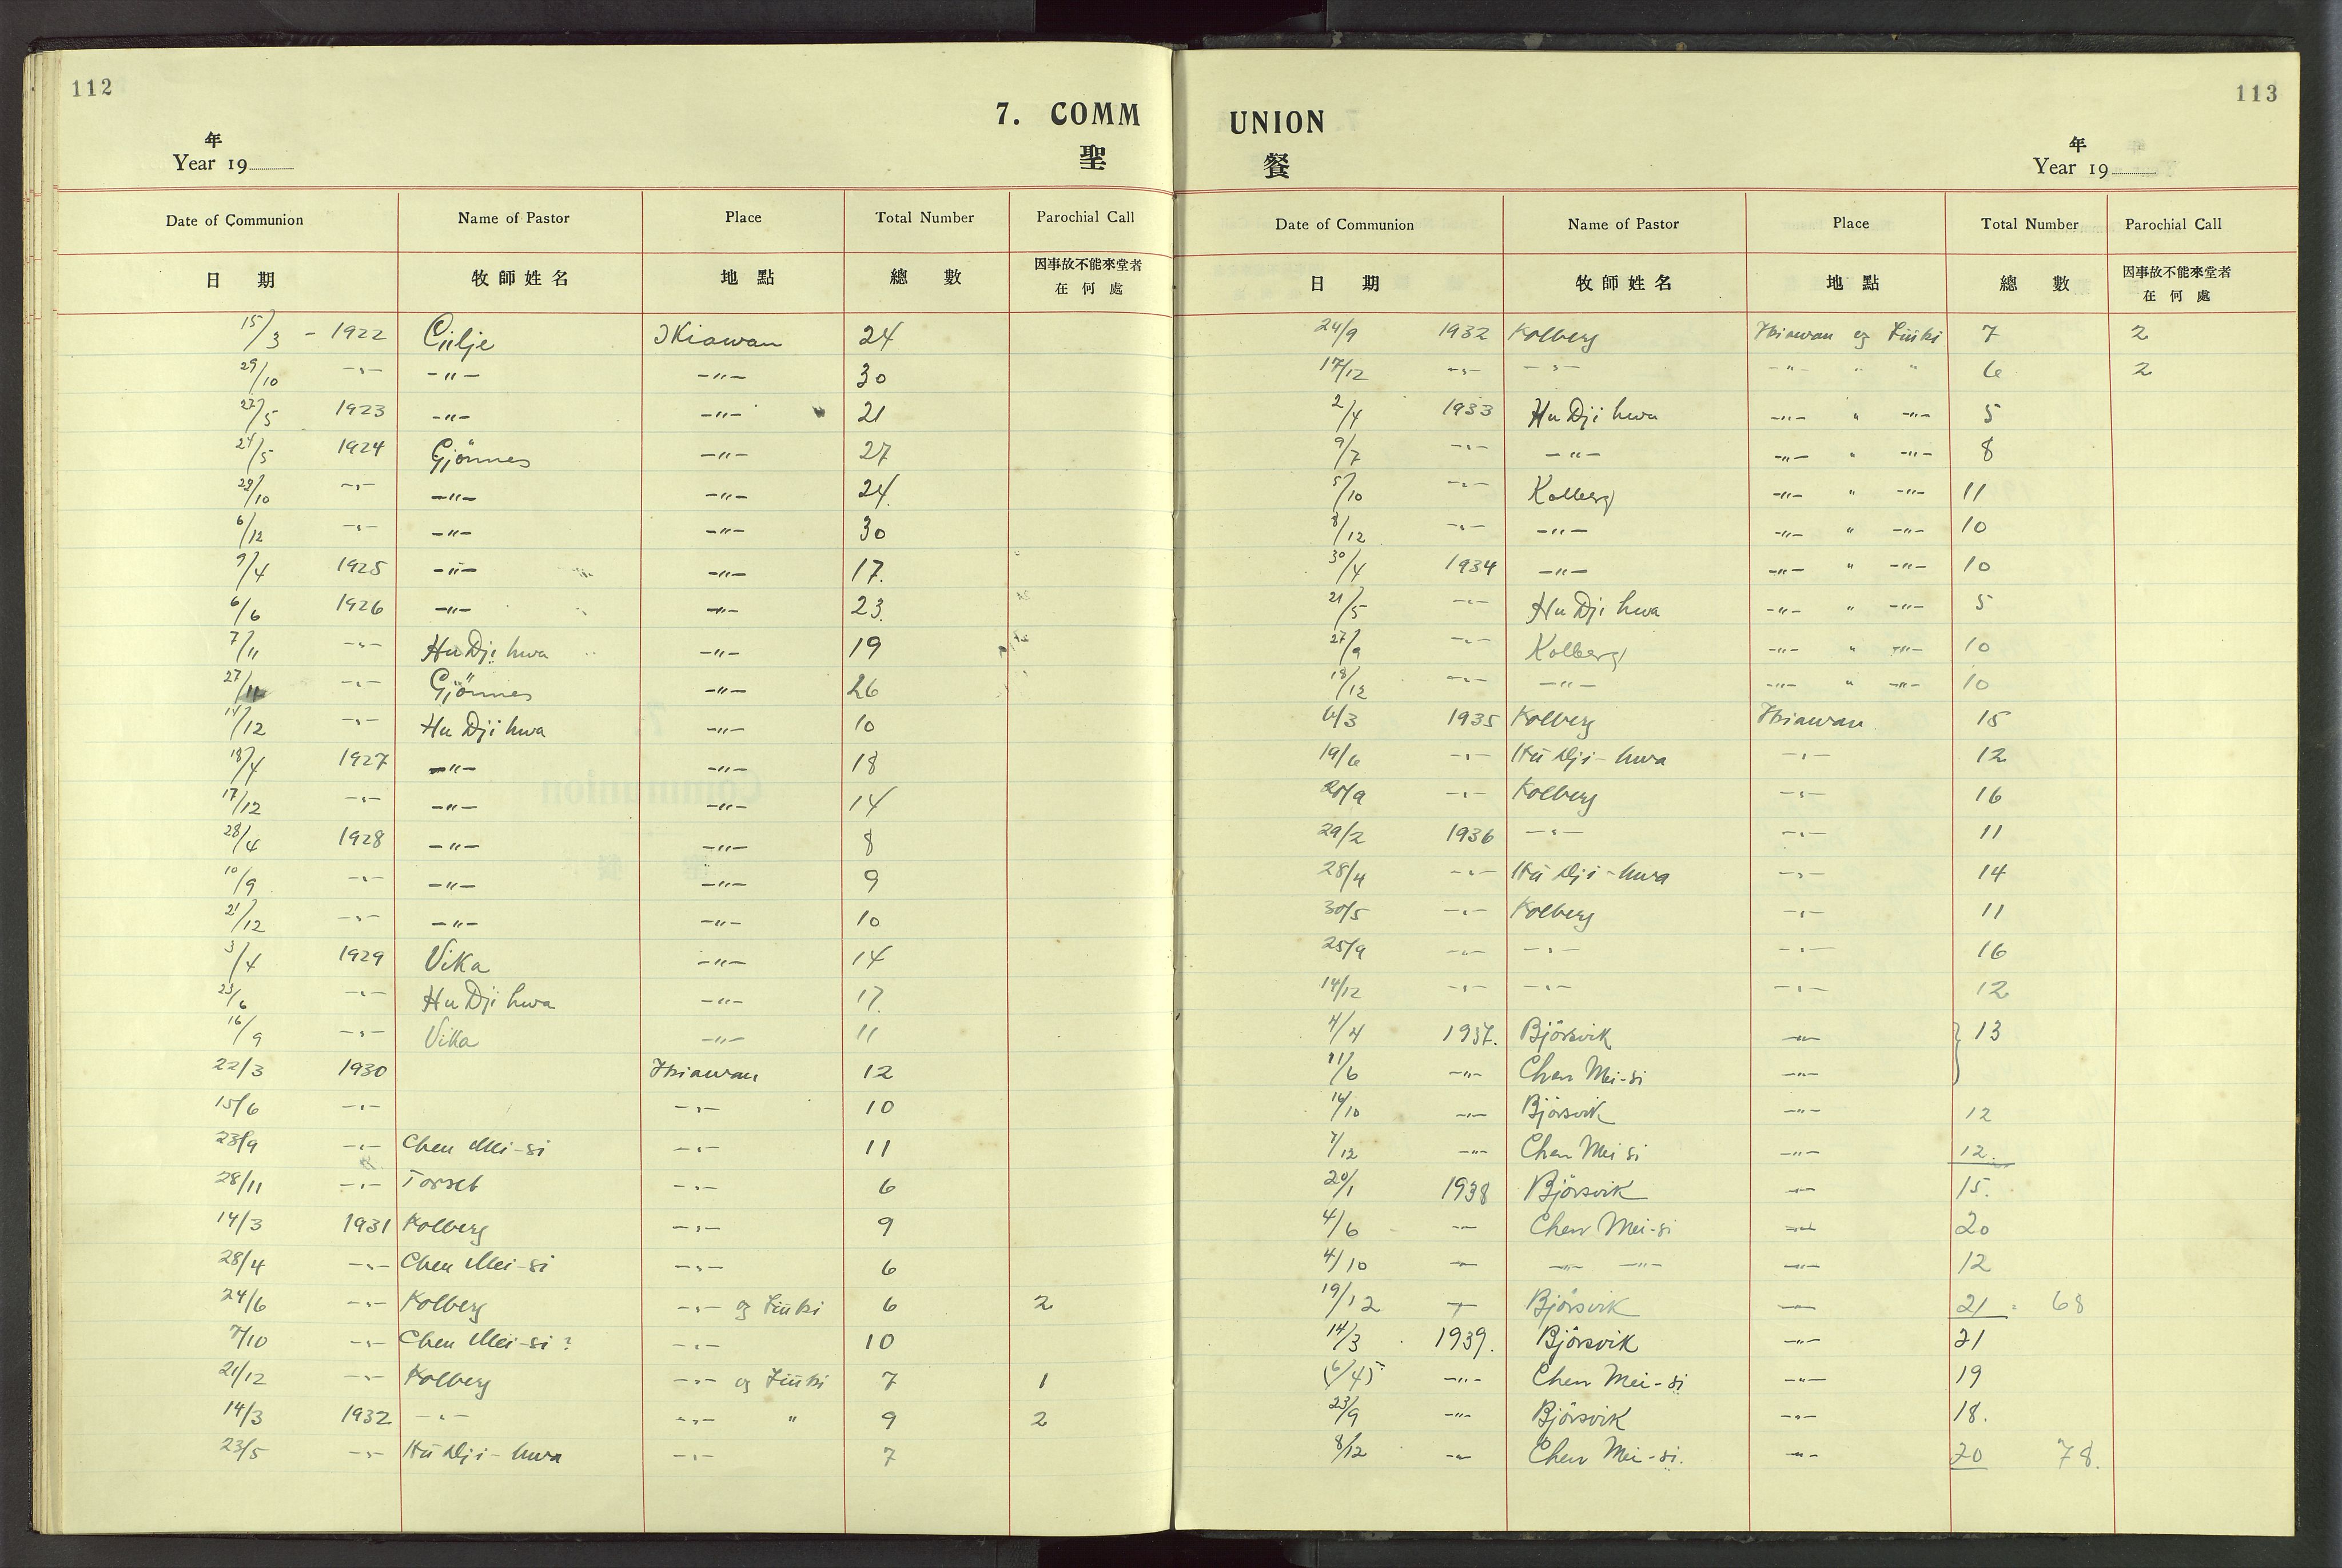 112
7. COMM
年
Year 19
聖
Date of Communion Name of Pastor Place Total Number Parochial Call
日 期 牧師姓名 地點 總數 因事故不能來堂者
在何處
15/3 - 1922 Gilje Hiawan 24
29/10 -"- -"- -"- 30
27/5 1923 -"- -"- 21
24/5 1924 Gjönnes -"- 27
29/10 -"- -"- -"- 24
6/12 -"- -"- -"- 30
9/4 1925 -"- -"- 17.
6/6 1926 -"- -"- 23.
7/11 -"- Hu Dji hwa -"- 19
27/11 -"- Gjönnes -"- 26
14/12 -"- Hu Dji hwa -"- 10
18/4 1927 -"- -"- 18
17/12 -"- -"- -"- 14
28/4 1928 -"- -"- 8
10/9 -"- -"- -"- 9
21/12 -"- -"- -"- 10
3/4 1929 Vika -"- 14
23/6 -"- Hu Dji hwa -"- 17.
16/9 -"- Vika -"- 11
22/3 1930 Hsiawan 12
15/6 -"- -"- 10
23/9 -"- Chen Mei-si -"- 11
28/11 -"- Torset -"- 6
14/3 1931 Kolberg -"- 9
28/4 -"- Chen Mei-si -"- 6
24/6 -"- Kolberg -"- og 6 2
7/10 -"- Chen Mei-si? -"- 10
21/12 -"- Kolberg -"- og 7 1
14/3 1932 -"- -"- " 9 2
23/5 -"- Hu Dji-hwa -"- 7
113
UNION
年
Year 19
餐
Date of Communion Name of Pastor Place Total Number Parochial Call
日 期 牧師姓名 地點 總數 因事故不能來堂者
在何處
24/9 1932 Kolberg Hsiawan og 7 2
17/12 -"- -"- -"- " " 6 2
2/4 1933 Hu Dji hwa -"- " -"- 5
9/7 -"- -"- -"- " -"- 8
5/10 -"- Kolberg -"- " -"- 11
8/12 -"- -"- -"- " -"- 10
30/4 1934 -"- -"- " -"- 10
21/5 -"- Hu Dji hwa -"- " -"- 5
27/9 -"- Kolberg -"- " -"- 10
18/12 -"- -"- -"- " -"- 10
6/3 1935 Kolberg Hsiawan 15
19/6 -"- Hu Dji-hwa -"- 12
20/9 -"- Kolberg -"- 16
29/2 1936 -"- -"- 11
28/4 -"- Hu Dji-hwa -"- 14
30/5 -"- Kolberg -"- 11
25/9 -"- -"- -"- 16
14/12 -"- -"- -"- 12
4/4 1937. Björsvik -"- } 13
11/6 -"- Chen Mei-si -"-
14/10 -"- Björsvik -"- 12
7/12 -"- Chen Mei si -"- 12.
20/1 1938 Björsvik -"- 15.
4/6 -"- Chen Mei-si -"- 20
4/10 -"- -"- -"- -"- 12
19/12 -"- Björsvik -"- 21 = 68
14/3 1939. Björsvik -"- 21
(6/4) -"- Chen Mei-si -"- 19
23/9 -"- Björsvik -"- 18.
8/12 -"- Chen Mei-si. -"- 20 78.